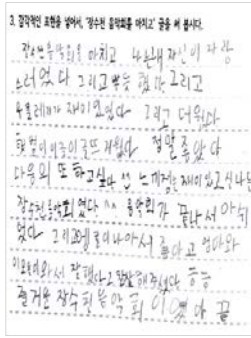 3. 감각적인 표현을 넣어서, '장수천 음악회를 마치고' 글을 써 봅시다.
장수천음악회을 마치고 나는 내 자신이 자랑
스러웠다 그리고 뿌듯 했다 그리고
우쿨레레가 재미있었다 그리고 더웠다
햇빛이 이글이글 뜨거웠다 정말 좋았다
다음의 또 하고싶다 ^^ 느낀점은 재미있고 신나는
장수천 음악회였다 ^^ 음악회가 끝나서 아쉬
웠다 그리고 나와서 좋다고 엄마와
이모 와서 잘했다고 칭찬해주셨다 ㅎㅎ
즐거운 장수천 음악회 이였다 끝